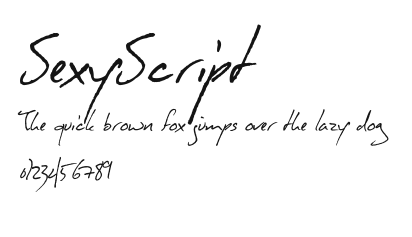 SexyScript
The quick brown fox jumps over the lazy dog
0123456789